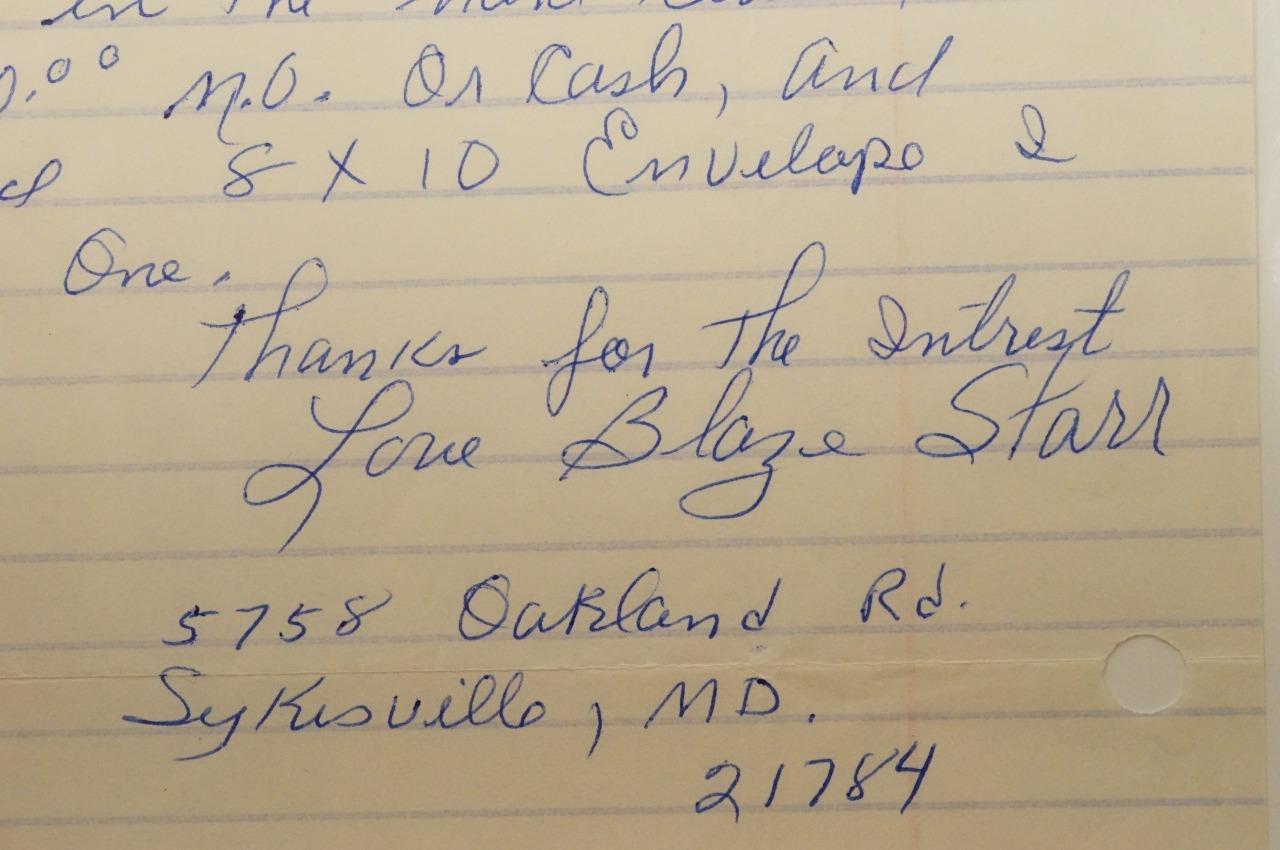 in the
.00 M.O. Or Cash, and
8 X 10 Envelape I
One.
Thanks for The Intrest
Love Blaze Starr
5758 Oakland Rd.
Sykesville, MD.
21784